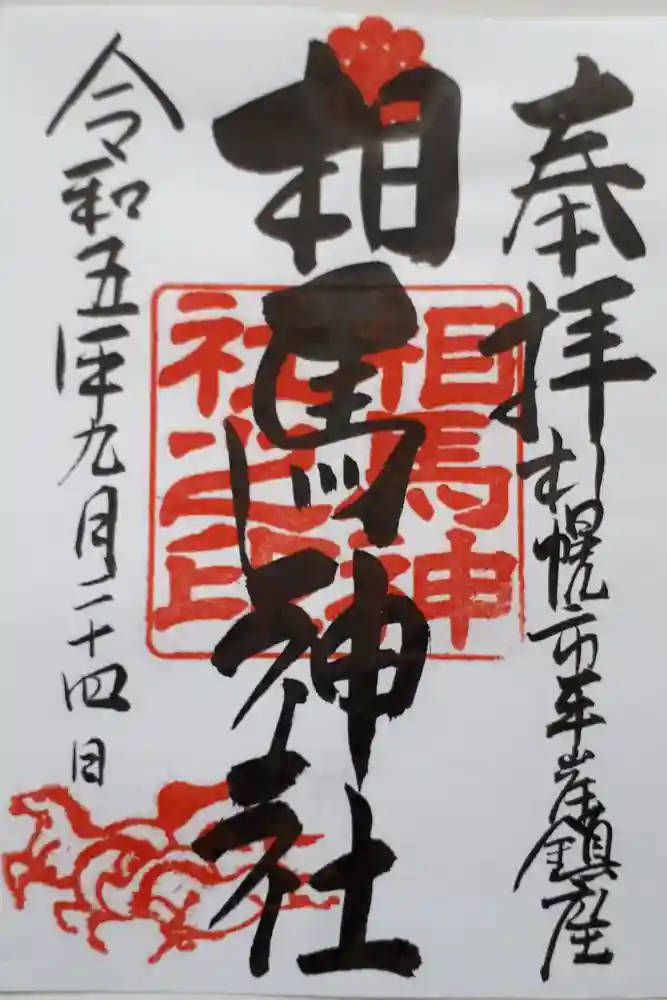 奉拝
札幌市平岸鎮座
相馬神社
相馬神
社之印
令和五年九月二十四日